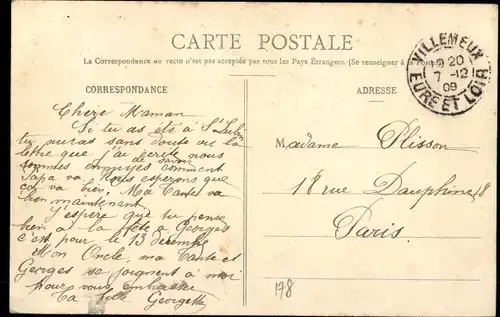 CARTE POSTALE
La Correspondance au recto n'est pas acceptée par tous les Pays Étrangers. (Se renseigner à la Poste)
VILLEMEUX
9 20
7 -12
09
EURE ET LOIR
CORRESPONDANCE
ADRESSE
Chère Maman
Si tu as été à St Lubin
tu auras sans doute vu la
lettre que j'ai écrite nous
sommes ennuyés de savoir comment
Papa va. Nous espérons que
va bien. Ma Tante va
bien maintenant
J'espère que tu pense
bien à la fête à Georges
c'est pour le 13 décembre
Mon Oncle, ma Tante et
Georges se joignent à moi
pour vous embrasser
Ta fille Georgette
Madame Plisson
18 rue Dauphine 18
Paris
178